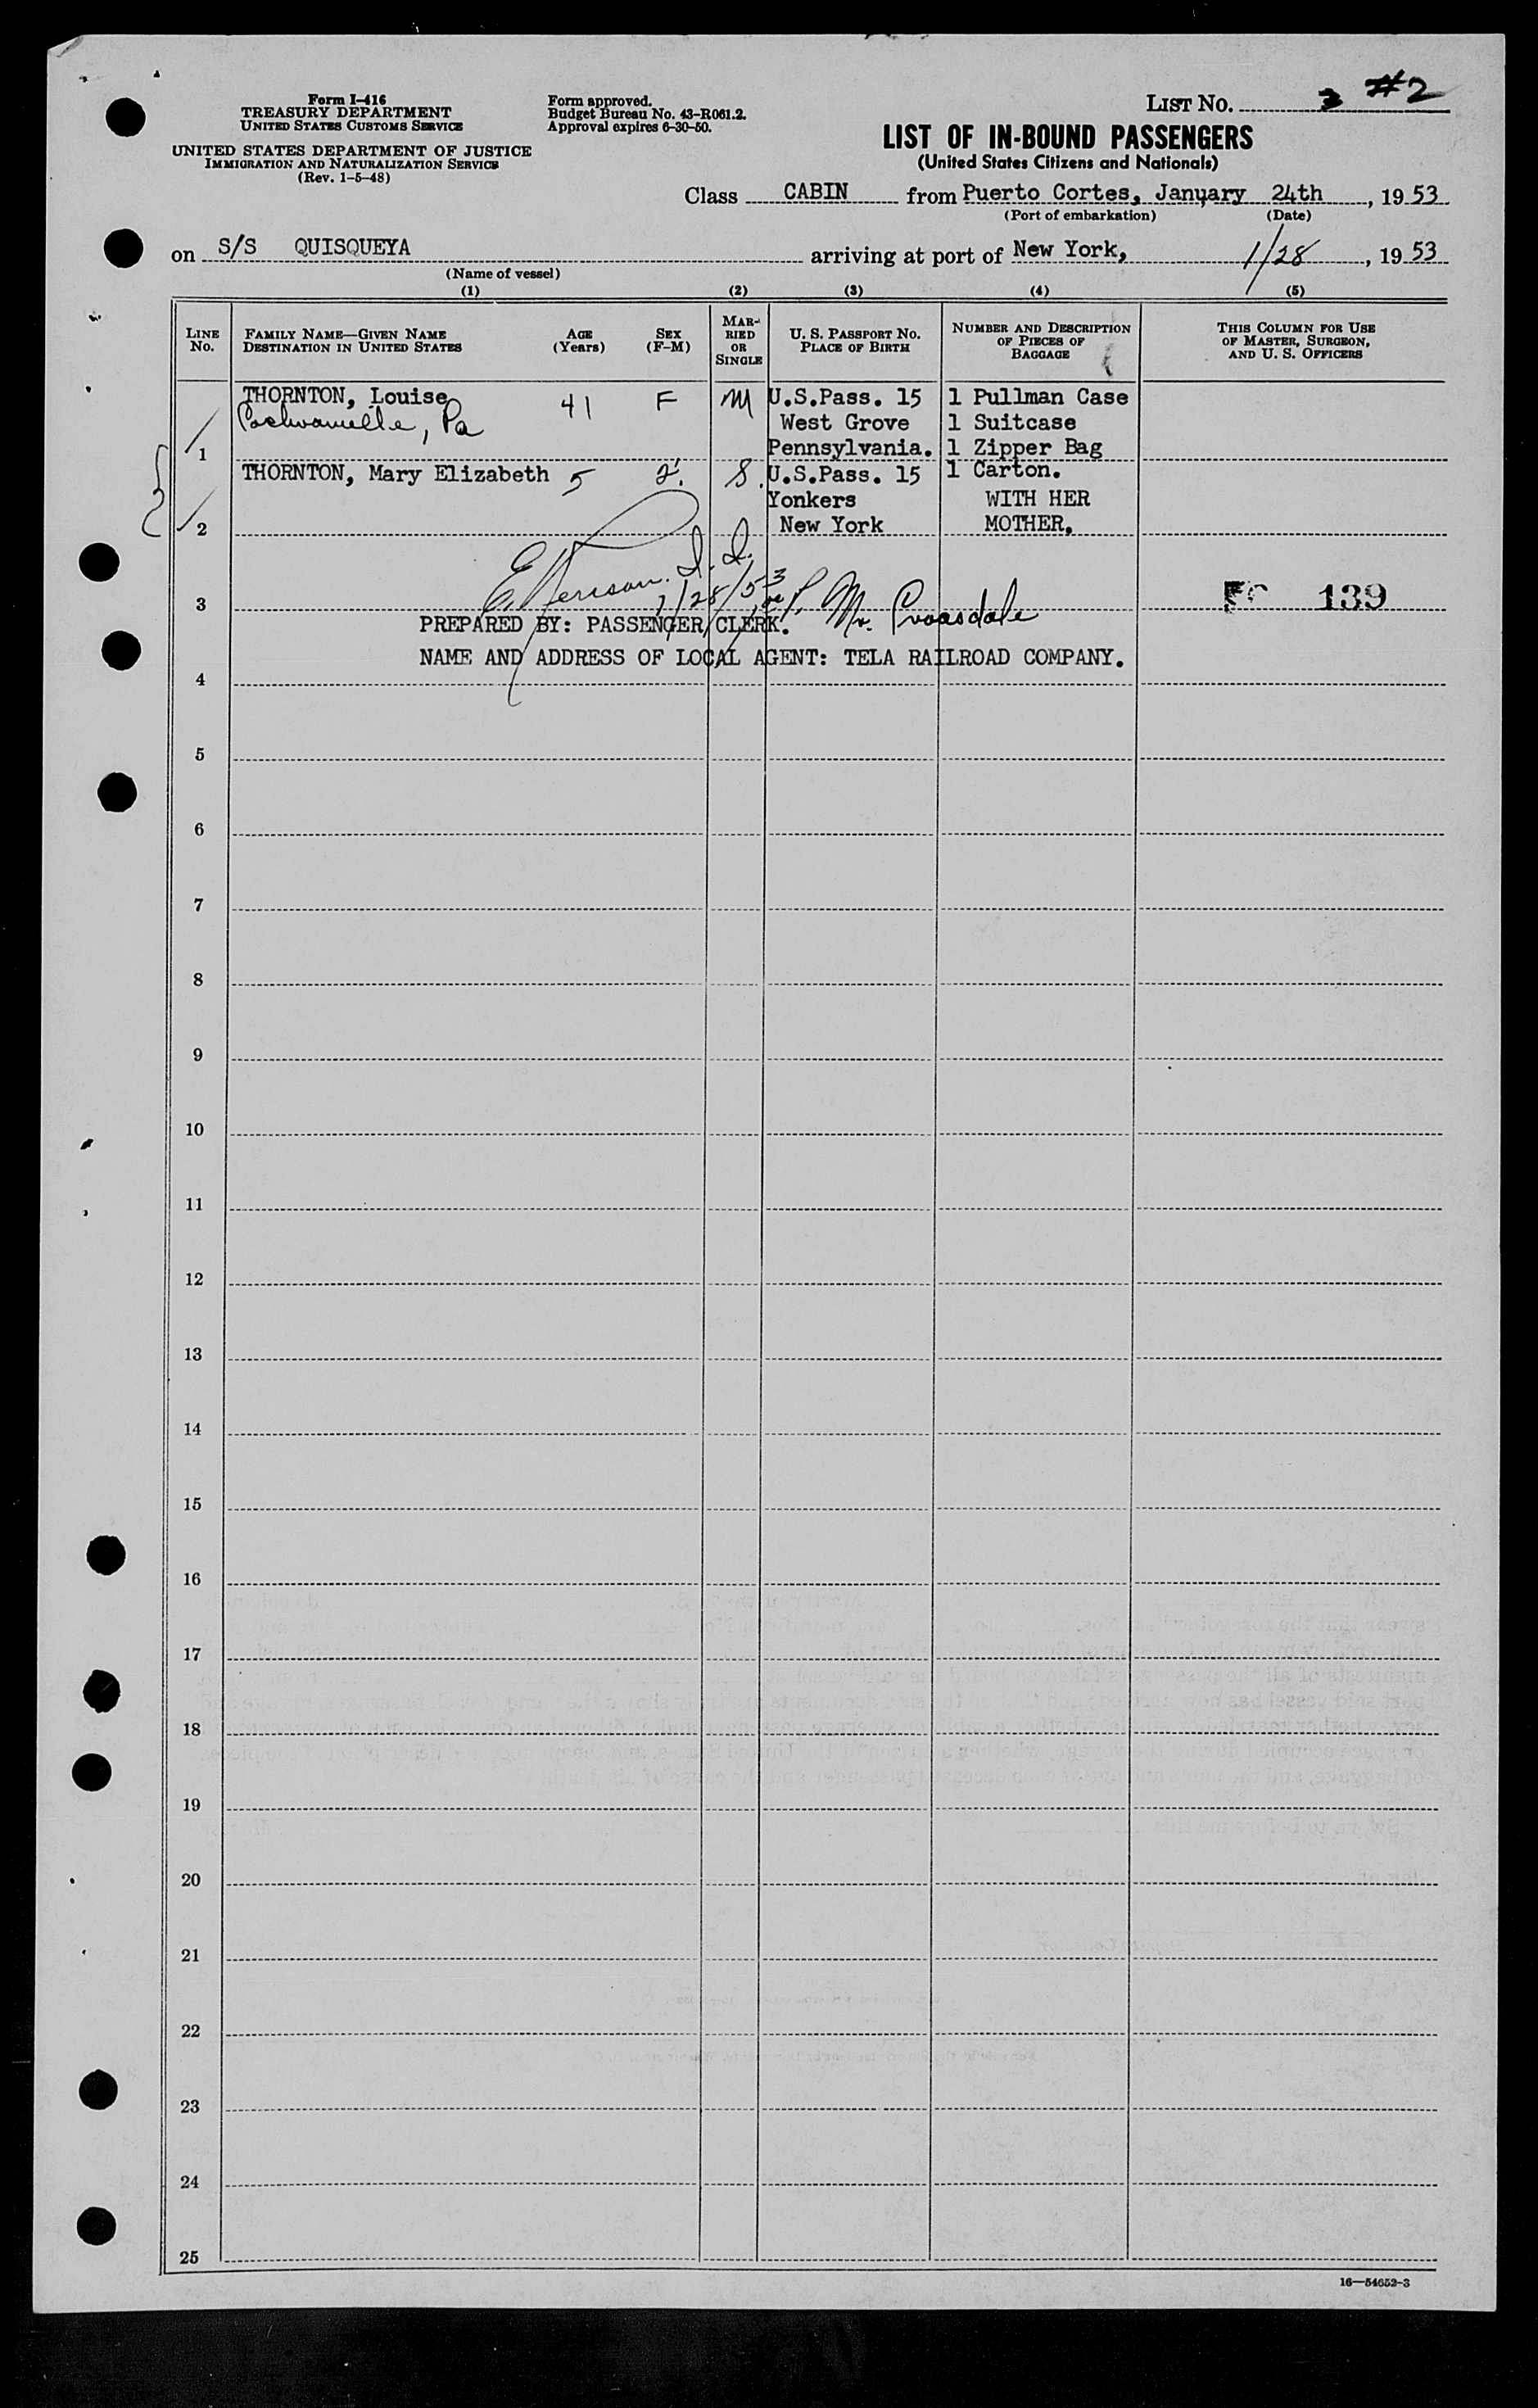 Form I-416
TREASURY DEPARTMENT
UNITED STATES CUSTOMS SERVICE
UNITED STATES DEPARTMENT OF JUSTICE
IMMIGRATION AND NATURALIZATION SERVICE
(Rev. 1-5-48)
Form approved.
Budget Bureau No. 43-R061.2.
Approval expires 6-30-50.
LIST NO. 3 #2
LIST OF IN-BOUND PASSENGERS
(United States Citizens and Nationals)
Class CABIN from Puerto Cortes, January 24th, 1953
(Port of embarkation) (Date)
on S/S QUISQUEYA arriving at port of New York, 1/28, 1953
(Name of vessel)
(1) (2) (3) (4) (5)
LINE No.
FAMILY NAME—GIVEN NAME
DESTINATION IN UNITED STATES
AGE (Years)
SEX (F-M)
MARRIED OR SINGLE
U. S. PASSPORT NO.
PLACE OF BIRTH
NUMBER AND DESCRIPTION OF PIECES OF BAGGAGE
THIS COLUMN FOR USE OF MASTER, SURGEON, AND U. S. OFFICERS
THORNTON, Louise 41 F M U.S.Pass. 15 1 Pullman Case
Pa West Grove 1 Suitcase
1 Pennsylvania. 1 Zipper Bag
THORNTON, Mary Elizabeth 5 S. U.S.Pass. 15 1 Carton.
Yonkers WITH HER
2 New York MOTHER.
1/28/53
3 139
PREPARED BY: PASSENGER CLERK. Mr.
NAME AND ADDRESS OF LOCAL AGENT: TELA RAILROAD COMPANY.
4
5
6
7
8
9
10
11
12
13
14
15
16
17
18
19
20
21
22
23
24
25
16—54652-3